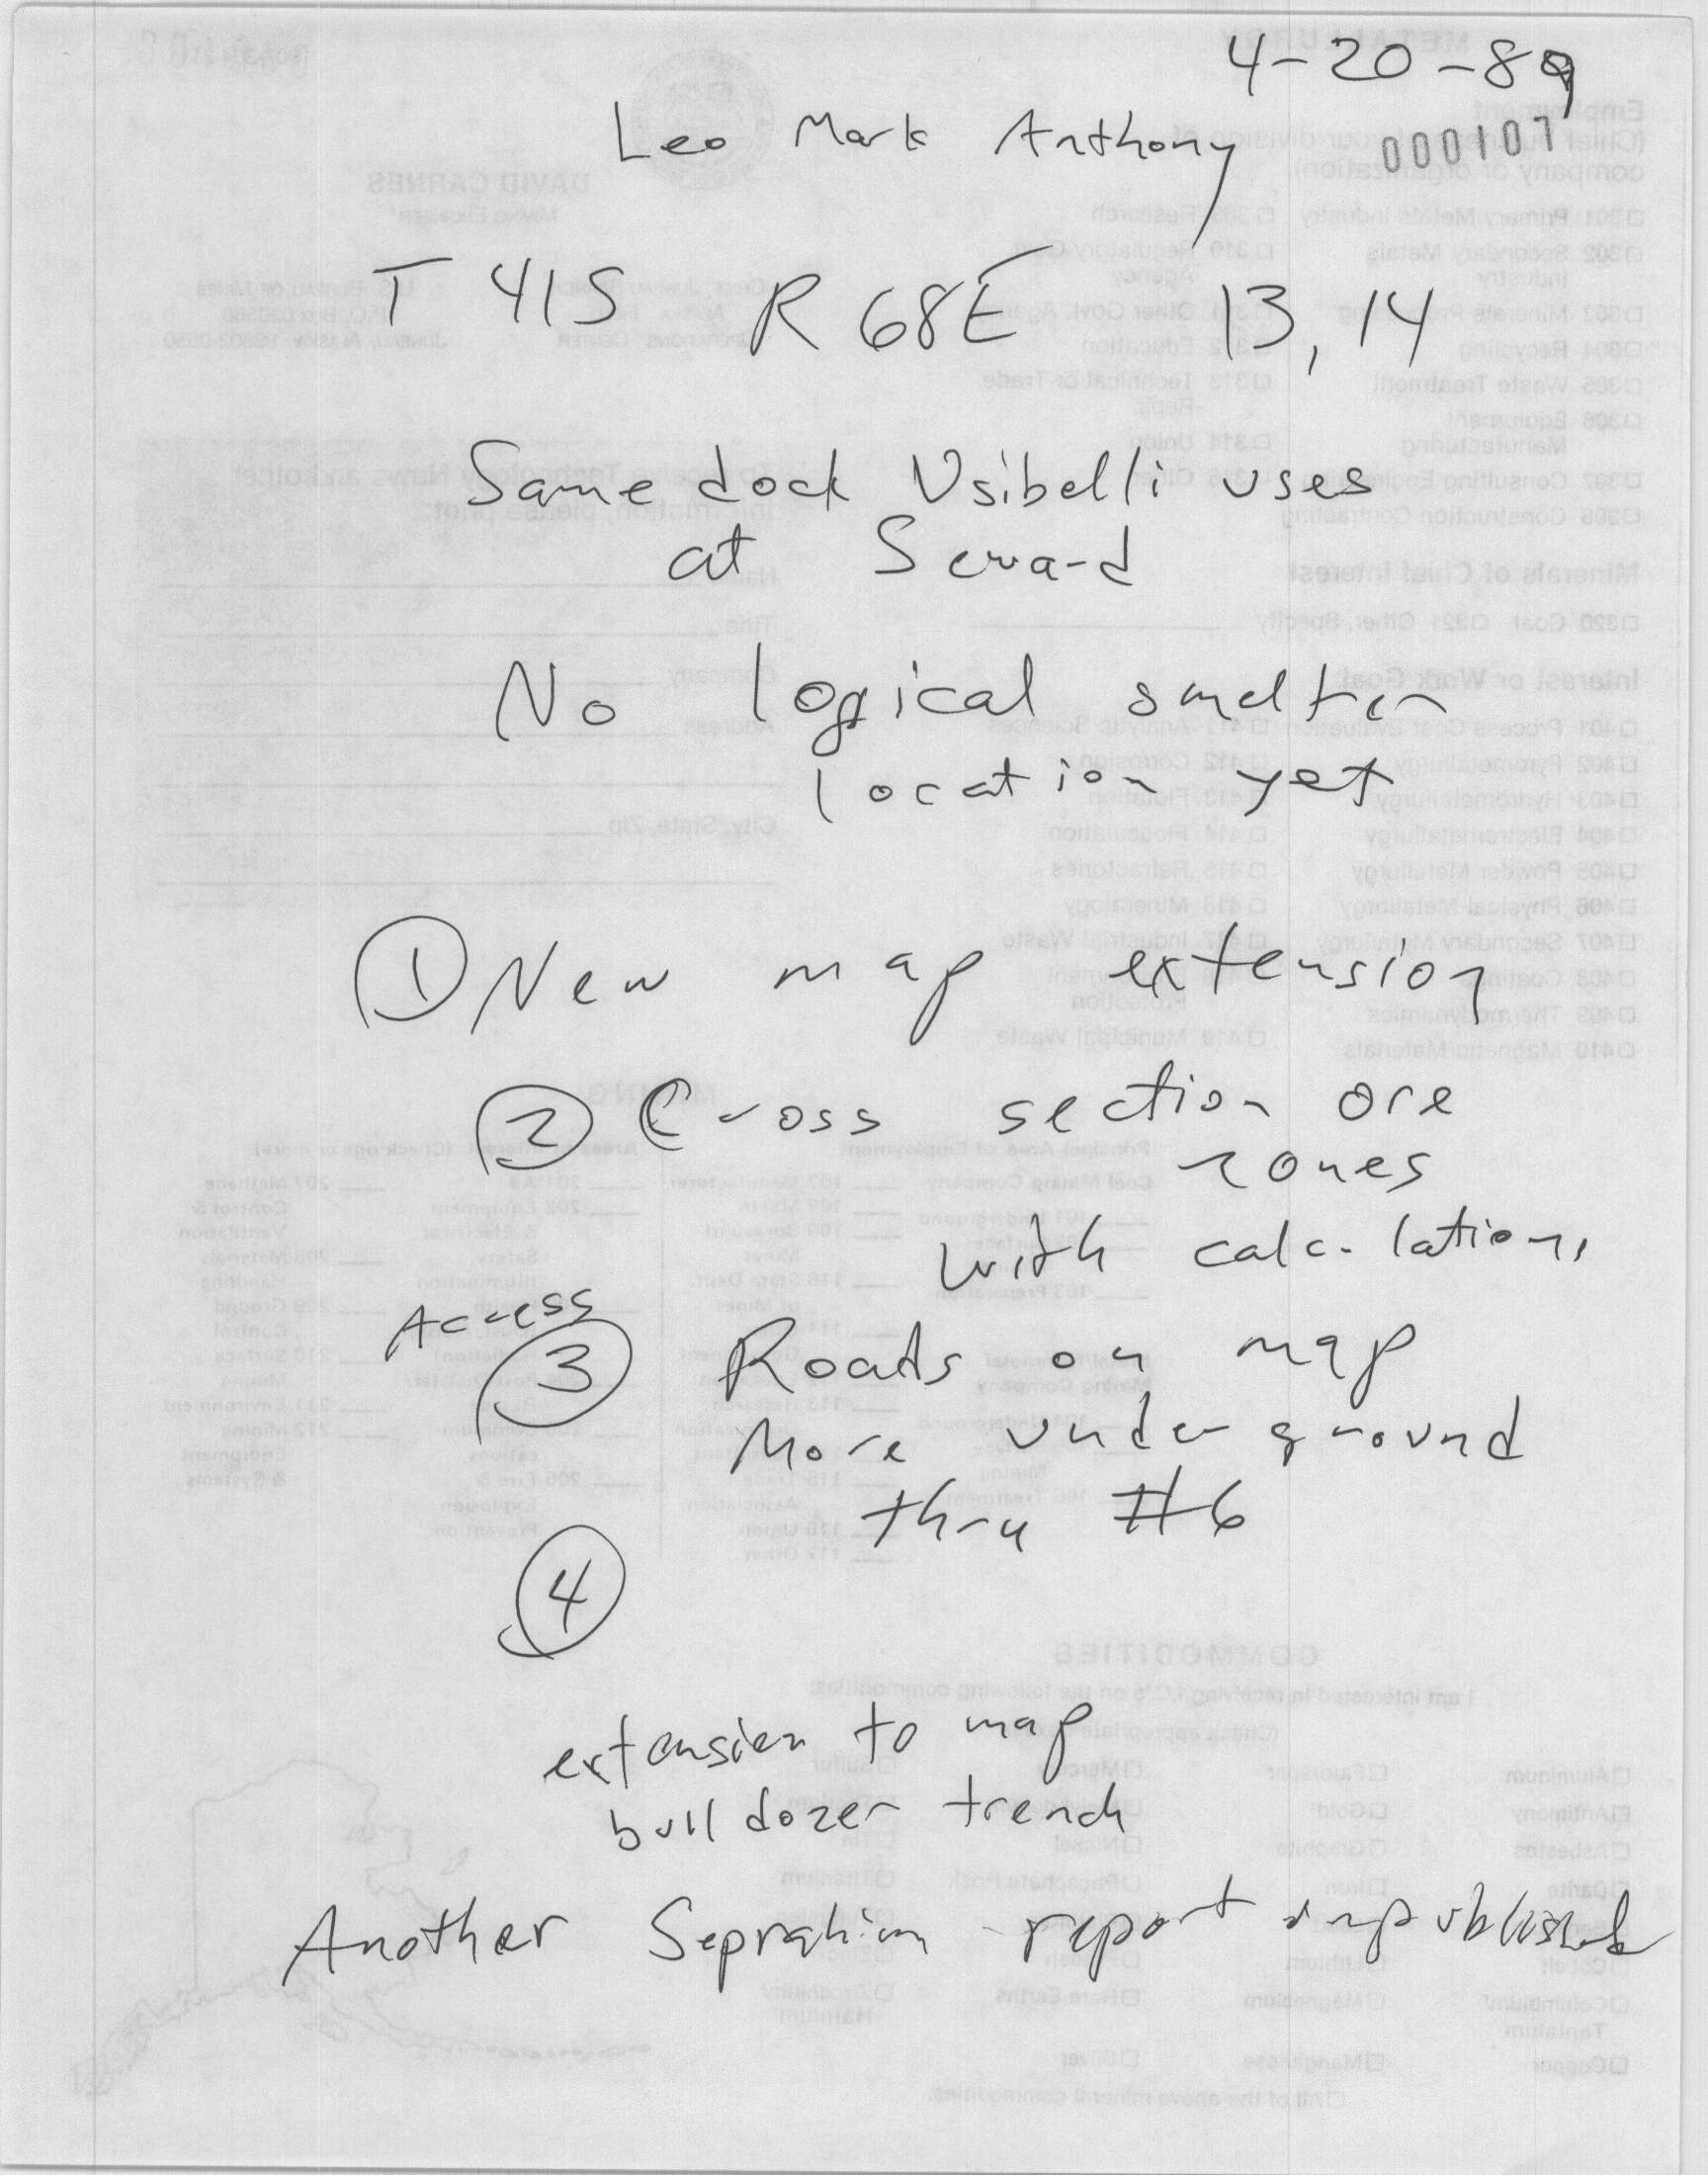 4-20-89
Leo Mark Anthony
000107
T 41S R 68E 13, 14
Same dock Usibelli uses
at Seward
No logical smelter
location yet
① New map extension
② Cross section ore
zones
with calculations
Access
③ Roads on map
More underground
thru #6
④
extension to map
bulldozer trench
Another report unpublished